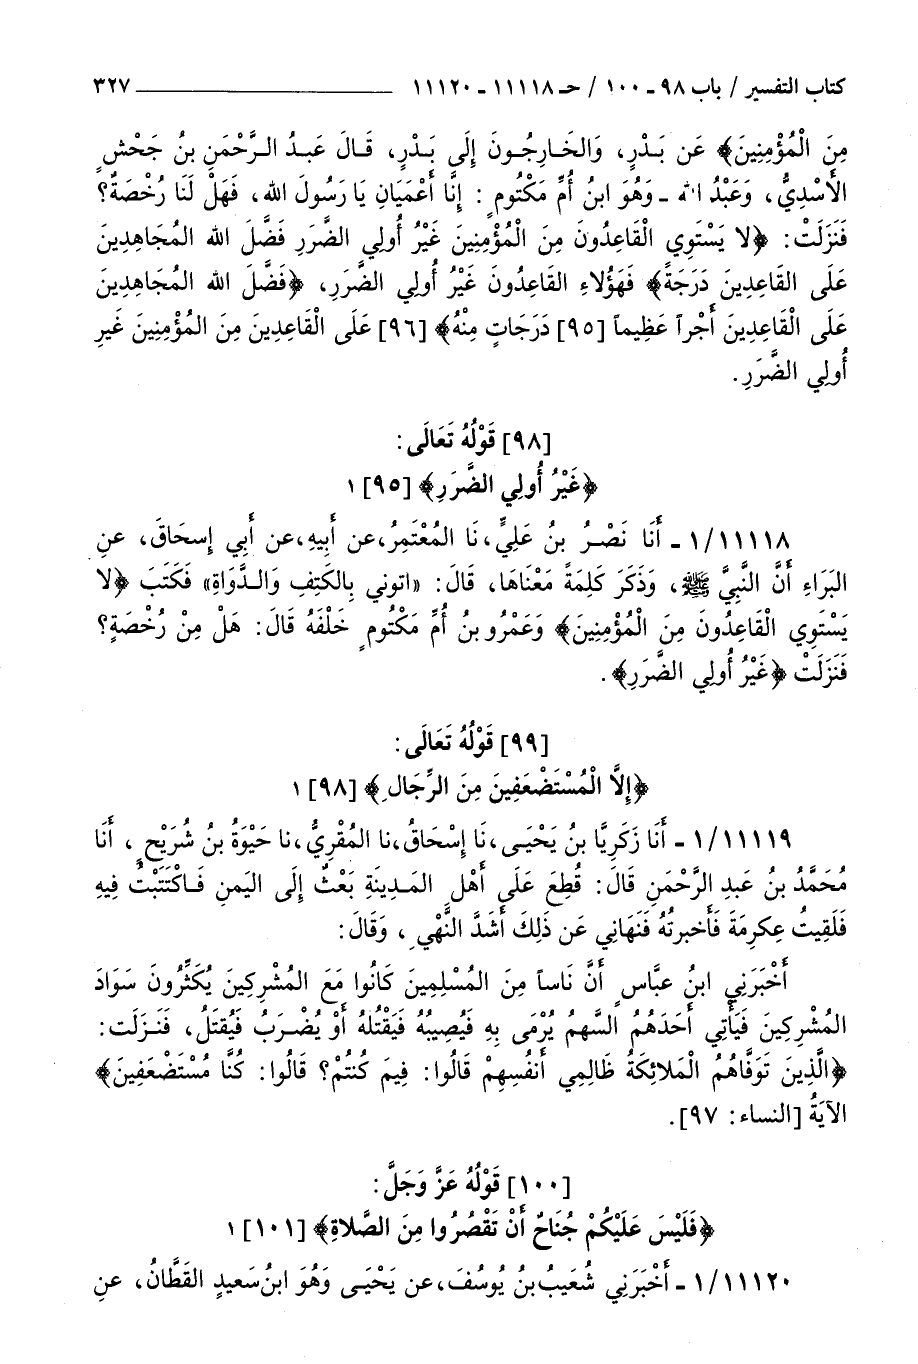 كتاب التفسير / باب ٩٨ ـ ١٠٠ / حـ ١١١١٨ ـ ١١١٢٠ ٣٢٧
مِنَ الْمُؤْمِنِينَ﴾ عَن بَدْرٍ، وَالخَارِجُونَ إِلَى بَدْرٍ، قَالَ عَبدُ الرَّحْمَنِ بنُ جَحْشٍ
الأَسْدِيُّ، وَعَبْدُ الله ـ وَهُوَ ابنُ أُمِّ مَكْتُومٍ: إِنَّا أَعْمَيَانِ يَا رَسُولَ الله، فَهَلْ لَنَا رُخْصَةٌ؟
فَنَزَلَتْ: ﴿لا يَسْتَوِي الْقَاعِدُونَ مِنَ الْمُؤْمِنِينَ غَيْرُ أُولِي الضَّرَرِ فَضَّلَ الله المُجَاهِدِينَ
عَلَى القَاعِدِينَ دَرَجَةً﴾ فَهَؤُلاءِ القَاعِدُونَ غَيْرُ أُولِي الضَّرَرِ، ﴿فَضَّلَ الله المُجَاهِدِينَ
عَلَى الْقَاعِدِينَ أَجْراً عَظِيماً [٩٥] دَرَجَاتٍ مِنْهُ﴾ [٩٦] عَلَى الْقَاعِدِينَ مِنَ المُؤْمِنِينَ غَيرِ
أُولِي الضَّرَرِ.
[٩٨] قَوْلُهُ تَعَالَى:
﴿غَيْرُ أُولِي الضَّرَرِ﴾ [٩٥] ١
١/١١١١٨ ـ أَنَا نَصْرُ بنُ عَلِيٍّ، نَا المُعْتَمِرُ، عن أَبِيهِ، عن أَبِي إِسحَاقَ، عنِ
البَرَاءِ أَنَّ النَّبِيَّ ﷺ، وَذَكَرَ كَلِمَةً مَعْنَاهَا، قَالَ: «اتوني بِالكَتِفِ وَالدَّوَاةِ» فَكَتَبَ ﴿لا
يَسْتَوِي الْقَاعِدُونَ مِنَ الْمُؤْمِنِينَ﴾ وَعَمْرُو بنُ أُمِّ مَكْتُومٍ خَلْفَهُ قَالَ: هَلْ مِنْ رُخْصَةٍ؟
فَنَزَلَتْ ﴿غَيْرُ أُولِي الضَّرَرِ﴾.
[٩٩] قَوْلُهُ تَعَالَى:
﴿إِلَّا الْمُسْتَضْعَفِينَ مِنَ الرِّجَالِ﴾ [٩٨] ١
١/١١١١٩ ـ أَنَا زَكَرِيَّا بنُ يَحْيَى، نَا إِسْحَاقُ، نا المُقْرِيُّ، نا حَيْوَةُ بنُ شُرَيْحٍ، أَنَا
مُحَمَّدُ بنُ عَبدِ الرَّحْمَنِ قَالَ: قُطِعَ عَلَى أَهْلِ المَدِينَةِ بَعْثٌ إِلَى اليَمنِ فَاكْتَتَبْتُ فِيهِ
فَلَقِيتُ عِكرِمَةَ فَأَخبرتُهُ فَنَهَانِي عَن ذَلِكَ أَشَدَّ النَّهْيِ، وَقَالَ:
أَخْبَرَنِي ابنُ عبَّاسٍ أَنَّ نَاساً مِنَ المُسْلِمِينَ كَانُوا مَعَ المُشْرِكِينَ يُكَثِّرُونَ سَوَادَ
المُشْرِكِينَ فَيَأْتِي أَحَدَهُمُ السَّهمُ يُرْمَى بِهِ فَيُصِيبُهُ فَيَقْتُلهُ أَوْ يُضْرَبُ فَيُقتَلُ، فَنَزَلَت:
﴿الَّذِينَ تَوَفَّاهُمُ الْمَلائِكَةُ ظَالِمِي أَنفُسِهِمْ قَالُوا: فِيمَ كُنتُمْ؟ قَالُوا: كُنَّا مُسْتَضْعَفِينَ﴾
الآيَةُ [النساء: ٩٧].
[١٠٠] قَوْلُهُ عَزَّ وَجَلَّ:
﴿فَلَيْسَ عَلَيْكُمْ جُنَاحٌ أَنْ تَقْصُرُوا مِنَ الصَّلاةِ﴾ [١٠١] ١
١/١١١٢٠ ـ أَخْبَرَنِي شُعَيبُ بنُ يُوسُفَ، عن يَحْيَى وَهُوَ ابنُ سَعيدٍ القَطَّانُ، عنِ